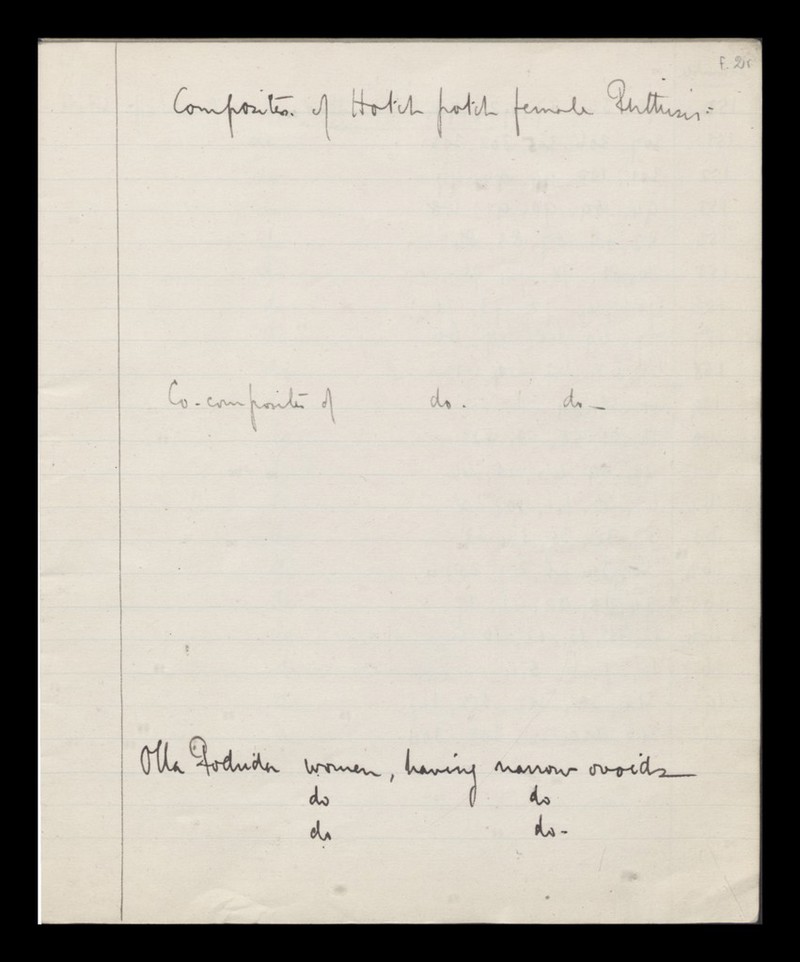 f. 2r
Composites of Hotch potch female Phthisis.
Co-composites of do. do-
Olla Podrida women, having narrow ovoids
do do
do do-